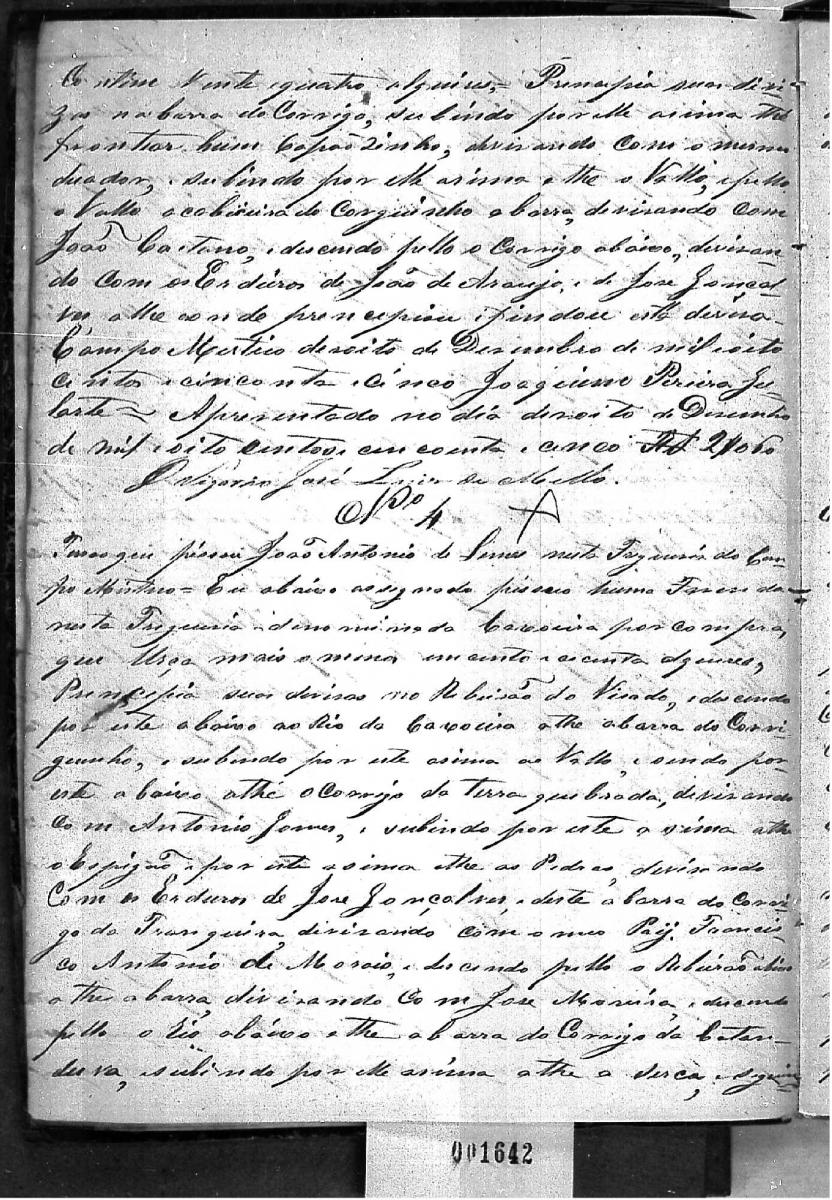 Contem Vente equatro alqueires,= Principia suas divi-
zas na barra do Corrigo, subindo por elle asima athe
frontiar hum Capaõzinho, devizando com o mesmo
duador, e subindo por elle asima athe o Vallo, e pello
o Vallo a cabiceira do Corguinho abarra, devisando com
Joaõ Caetano, e descendo pello o Corrigo abaixo, devisan-
do com os Erdeiros de Joaõ de Araujo, e de Jose Gonçal-
ves athe aonde prencepiou e findou esta deviza.
Campo Mistico desoito de Dezembro de mil eoito
centos e cincoenta e cinco Joaquim Pereira Gu-
larte = Apresentado no dia desoito de Desembro
de mil e oito centos e cincoenta e cinco
O Vigario José Luis de Mello.
Nº 4
Terras que pessue Joaõ Antonio de Lemes nesta Freguesia do Cam-
po Mistico= Eu abaixo assignado pessuo huma Fazenda
nesta Freguesia denominada Caxoeira por compra,
que leva mais o menos cento e alqueires,
Prencepia suas devisas no Ribeiraõ do Viado, e descendo
por este abaixo ao Rio da Caxoeira athe abarra do Corri-
guinho, e subindo por este asima ao Vallo, e sendo por
este abaixo athe o Corrijo da terra quebrada, devisando
Com Antonio Gomes, e subindo por este asima athe
o Espigaõ e por este asima athe as Pedras, devisando
Com os Erdeiros de Jose Gonçalves, e deste abarra do Corri-
go da Tranqueira, devisando com o meo Pay Francis-
co Antonio de Morais, e descendo pello o Ribeiraõ abaixo
athe abarra, devisando Com Jose Moreira, e descendo
pello o Rio abaixo athe abarra do Corrigo da Catan-
duva, e subindo por elle asima athe a serca, e seguin
001642